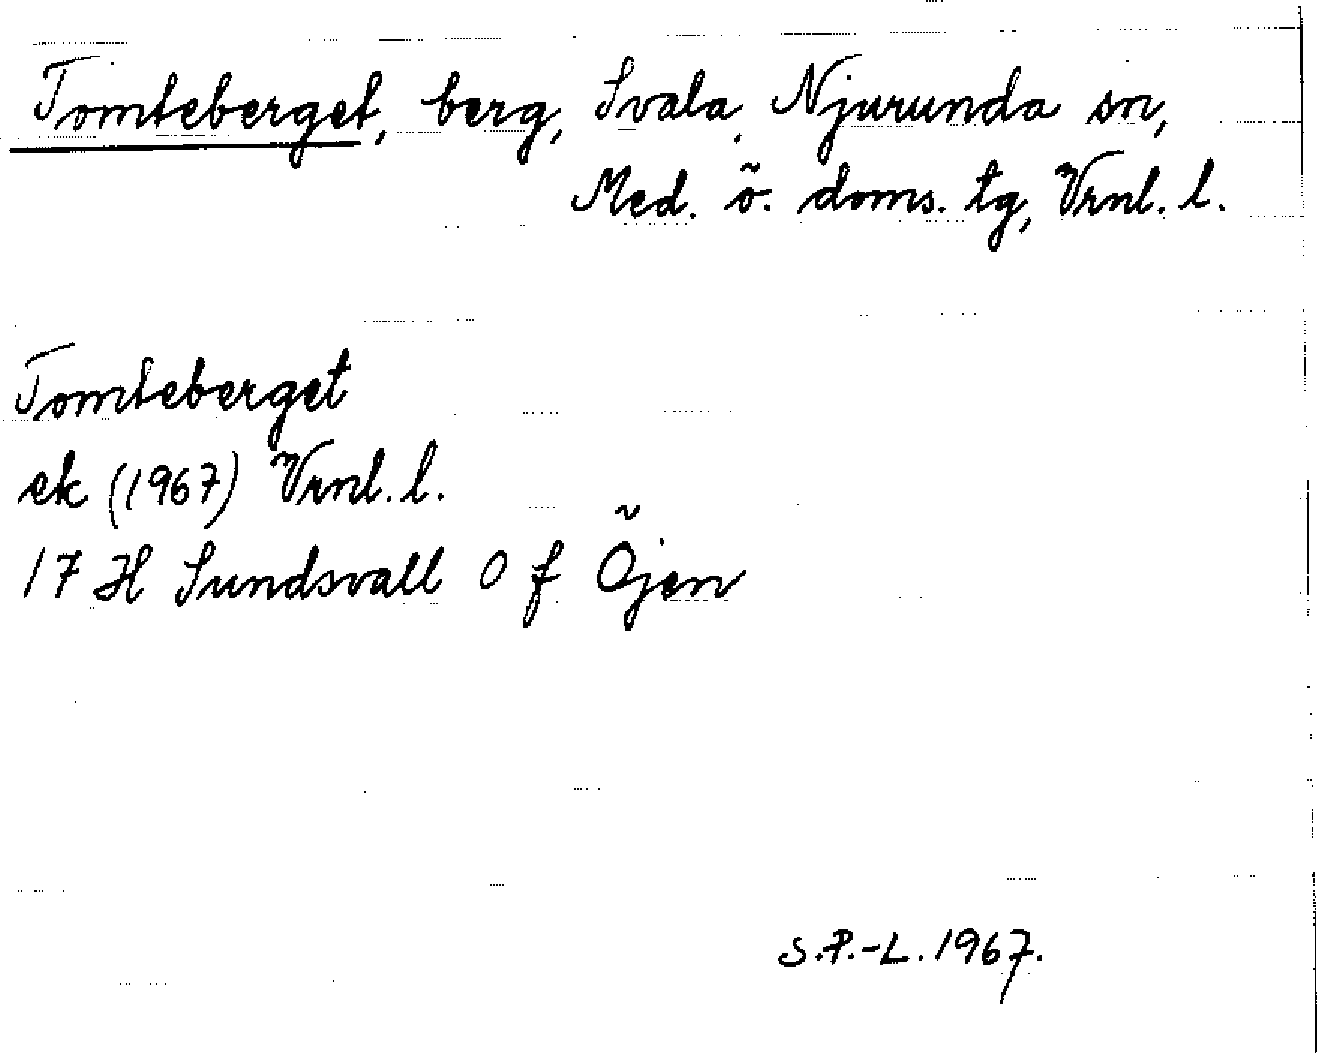 Tomteberget, berg, Svala, Njurunda sn,
Med. ö. doms. tg, Vrnl. l.
Tomteberget
ek (1967) Vrnl. l.
17 H Sundsvall O f Öjen
S.P.-L. 1967.